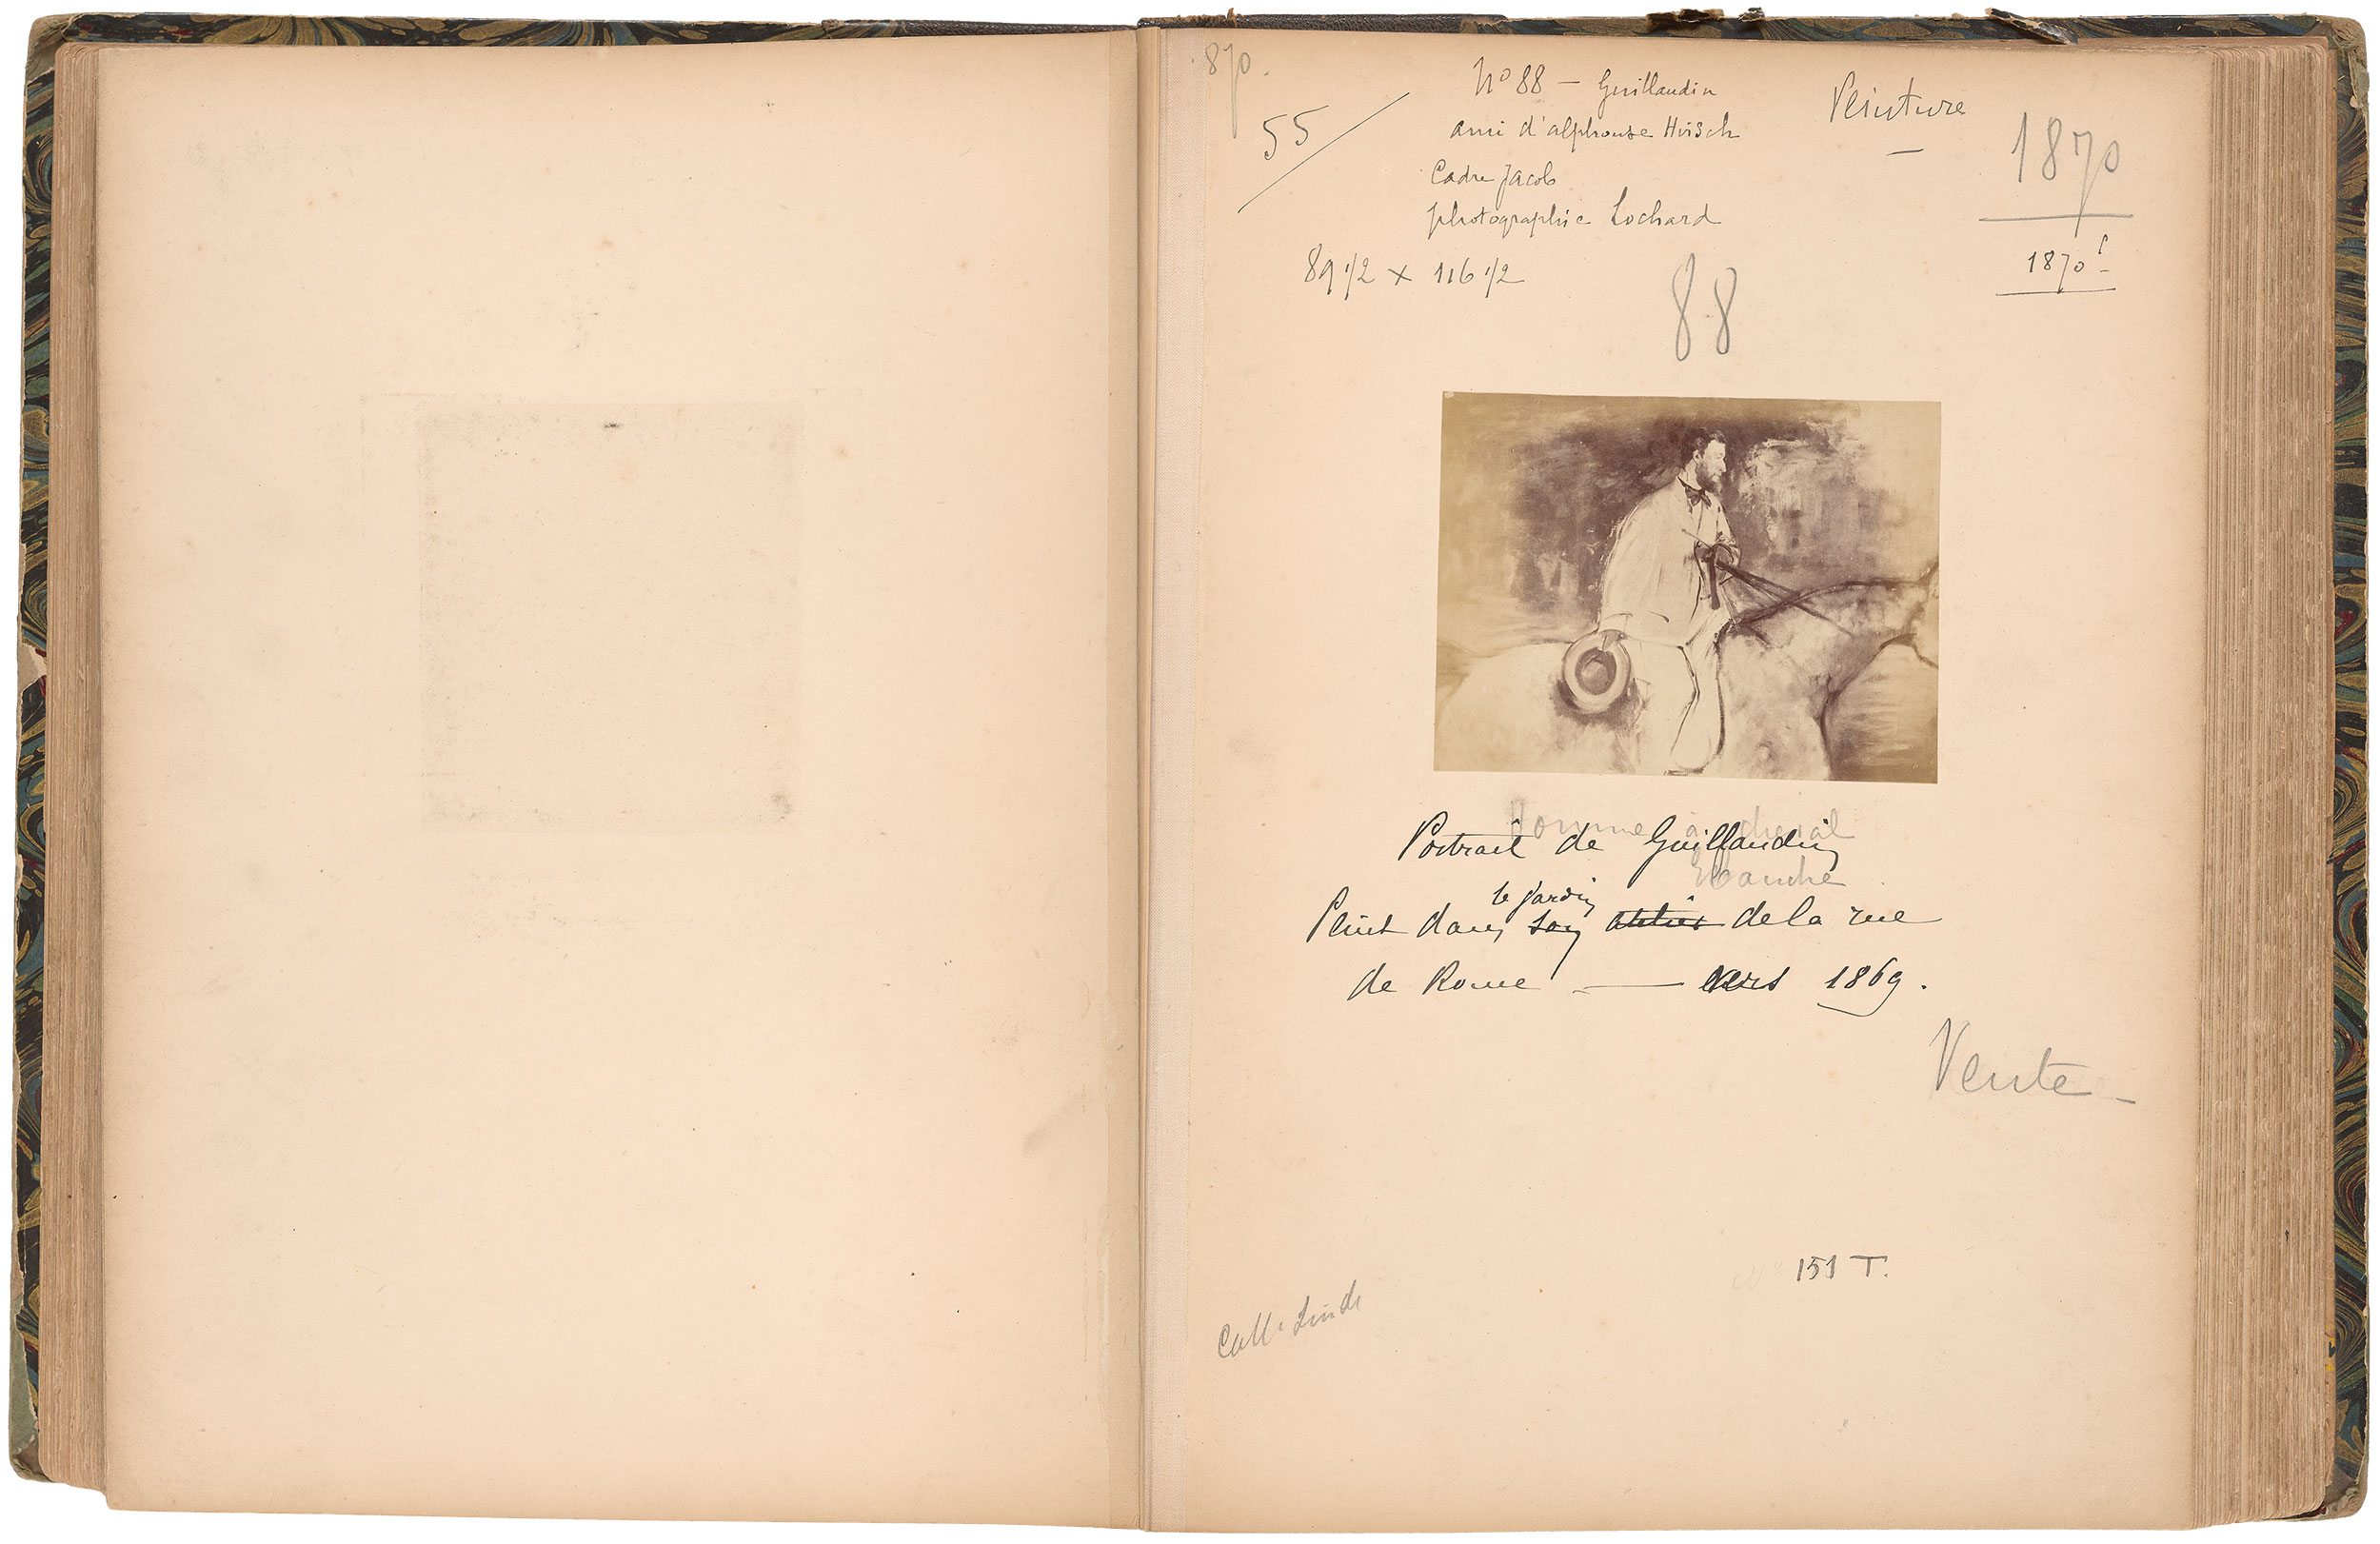 870.
55
Nº 88 — Guillaudin
Peinture
ami d'alphonse Hirsch
1870
Cadre Jacob
photographie Lochard
89 1/2 × 116 1/2
1870
88
homme à cheval
Portrait de Guillaudin
Ebauche
le jardin
Peint dans son atelier de la rue
de Rome — vers 1869.
Vente -
151 T.
Coll.